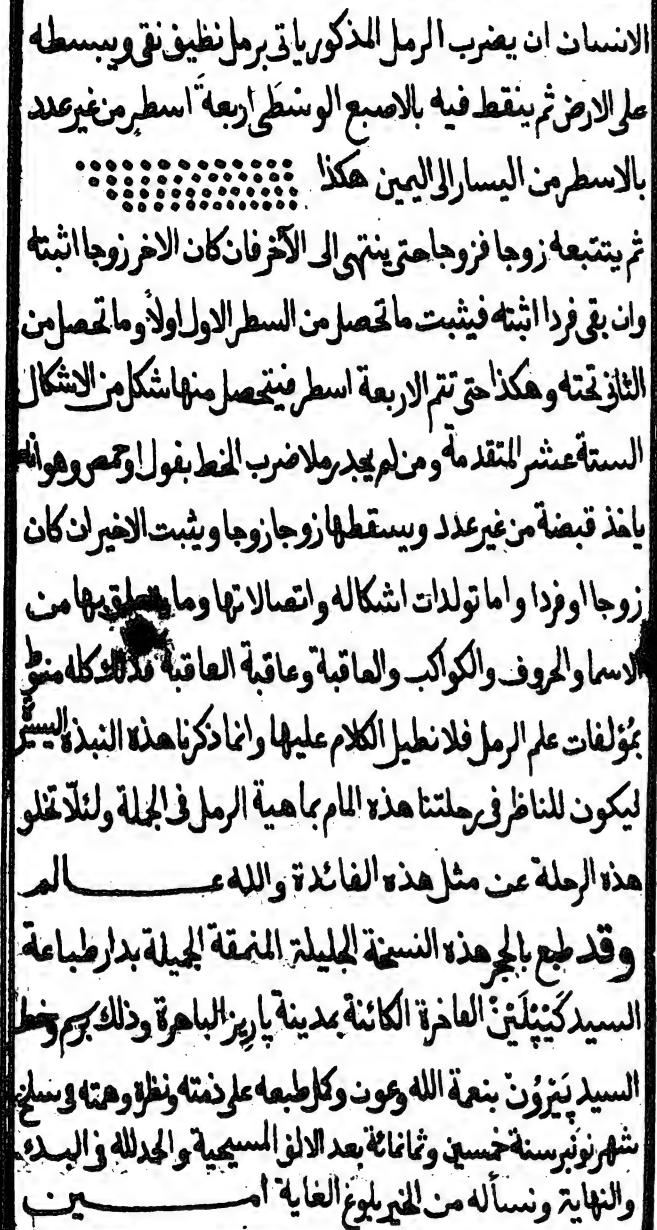 الانسان ان يضرب الرمل المذكور ياتى برمل نظيف نقى ويبسطه
على الارض ثم ينقط فيه بالاصبع الوسطى اربعة اسطر من غير عدد
بالاسطر من اليسار الى اليمين هكذا
ثم يتتبعه زوجا فزوجا حتى ينتهى الى الآخر فان كان الاخر زوجا اثبته
وان بقى فردا اثبته فيثبت ما تحصل من السطر الاول اولاً وما تحصل من
الثانى تحته وهكذا حتى تتم الاربعة اسطر فيتحصل منها شكل من الاشكال
الستة عشر المتقدمة ومن لم يجد رملا ضرب الخط بفول او حمص وهو انه
ياخذ قبضة من غير عدد ويسقطها زوجا زوجا ويثبت الاخير ان كان
زوجا او فردا واما تولدات اشكاله واتصالاتها وما يتعلق بها من
الاسما والحروف والكواكب والعاقبة وعاقبة العاقبة فذلك كله منوط
بمؤلفات علم الرمل فلا نطيل الكلام عليها وانما ذكرنا هذه النبذة اليسيرة
ليكون للناظر فى رحلتنا هذه المام بماهية الرمل فى الجملة ولئلّا تخلو
هذه الرحلة عن مثل هذه الفائدة والله عـــالم
وقد طبع بالحجر هذه النسخة الجليلة المنمقة الجميلة بدار طباعة
السيد كَيْپْلَيْنْ الفاخرة الكائنة بمدينة پاريز الباهرة وذلك برسم وخط
السيد پَيْرُونْ بنعمة الله وعون وكمل طبعه على ذمته ونظره وهمته فى سلخ
شهر نونبر سنة خمسين وثمانمائة بعد الالف المسيحية والحمد لله فى البدء
والنهاية ونسأله من الخير بلوغ الغاية امـــين